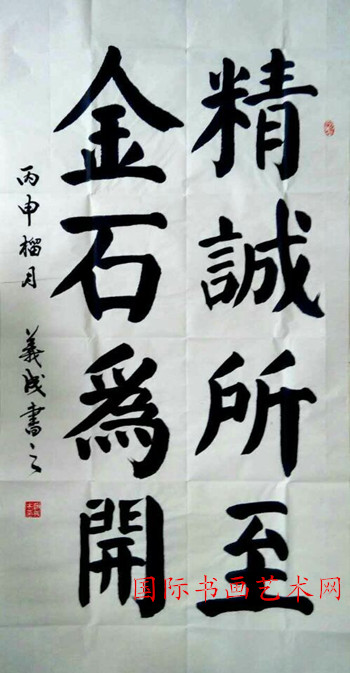 精誠所至
金石爲開
丙申榴月
義成書之
国际书画艺术网